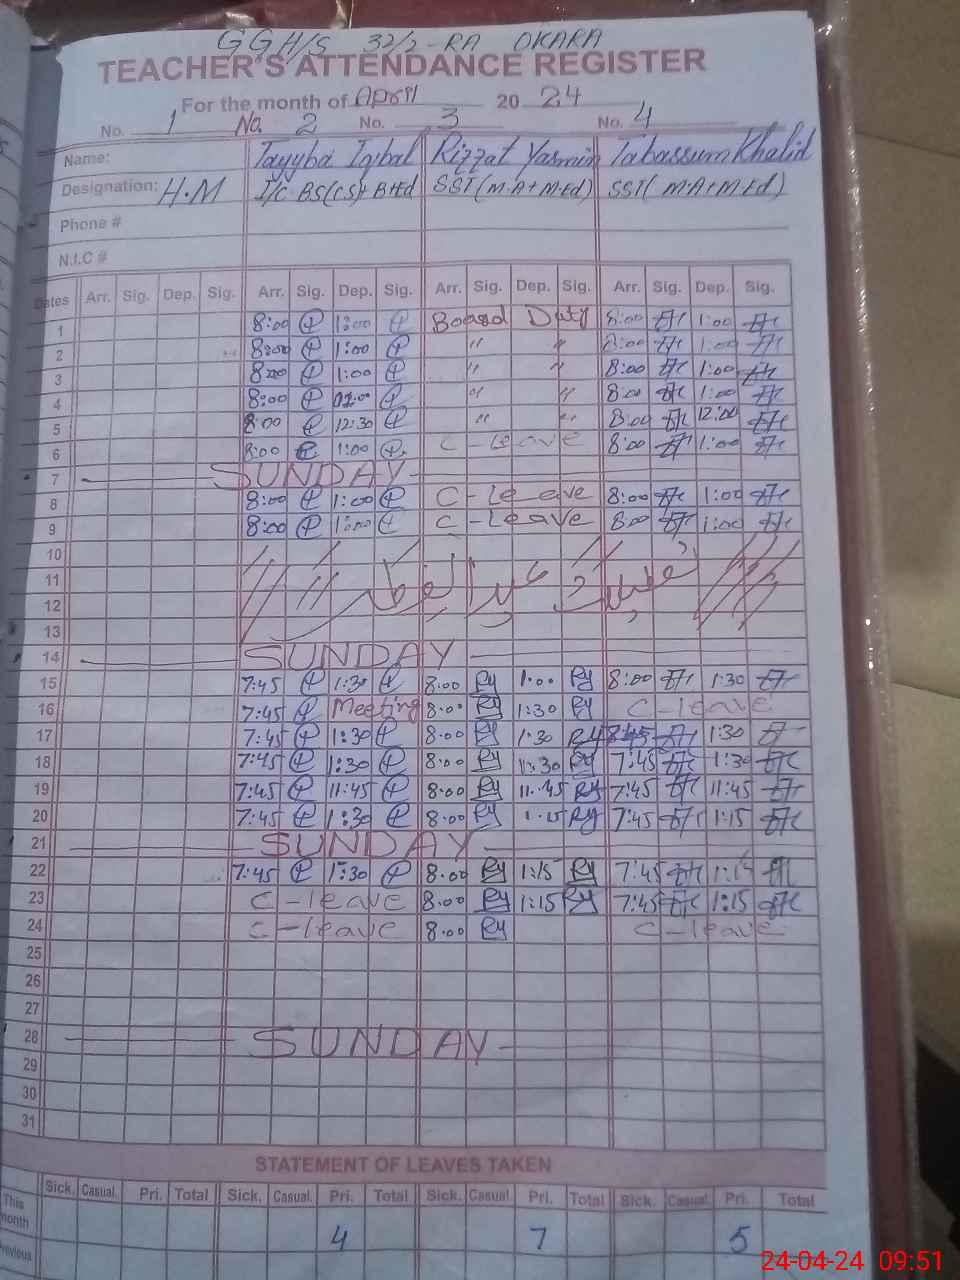 GGH/S 32/2-RA OKARA
TEACHER'S ATTENDANCE REGISTER
For the month of April 2024
No. 1 No. 2 No. 3 No. 4
Name: Tayyba Iqbal Rizzat Yasmin Tabassum Khalid
Designation: H.M I/C BS(CS)+ B+Ed SST(M.A+M.Ed) SST(M.A+M.Ed)
Phone #
N.I.C #
Dates Arr. Sig. Dep. Sig. Arr. Sig. Dep. Sig. Arr. Sig. Dep. Sig. Arr. Sig. Dep. Sig.
1 8:00 1:00 Board Duty 8:00 1:00
2 8:00 1:00 " " 8:00 1:00
3 8:00 1:00 " " 8:00 1:00
4 8:00 01:00 " " 8:00 1:00
5 8:00 12:30 " " 8:00 12:00
6 8:00 1:00 C-leave 8:00 1:00
7 SUNDAY
8 8:00 1:00 C-Leave 8:00 1:00
9 8:00 1:00 C-Leave 8:00 1:00
10
11 عیدالفطر
12
13
14 SUNDAY
15 7:45 1:30 8:00 Ry 1:00 Ry 8:00 1:30
16 7:45 Meeting 8:00 Ry 1:30 Ry C-leave
17 7:45 1:30 8:00 Ry 1:30 Ry 1:30
18 7:45 1:30 8:00 Ry 1:30 Ry 7:45 1:30
19 7:45 11:45 8:00 Ry 11:45 Ry 7:45 11:45
20 7:45 1:30 8:00 Ry 1:15 Ry 7:45 1:15
21 SUNDAY
22 7:45 1:30 8:00 Ry 1:15 Ry 7:45 1:15
23 C-leave 8:00 Ry 1:15 Ry 7:45 1:15
24 C-leave 8:00 Ry C-leave
25
26
27
28 SUNDAY
29
30
31
STATEMENT OF LEAVES TAKEN
Sick. Casual. Pri. Total Sick. Casual. Pri. Total Sick. Casual. Pri. Total Sick. Casual. Pri. Total
This month 4 7 5
Previous
24-04-24 09:51